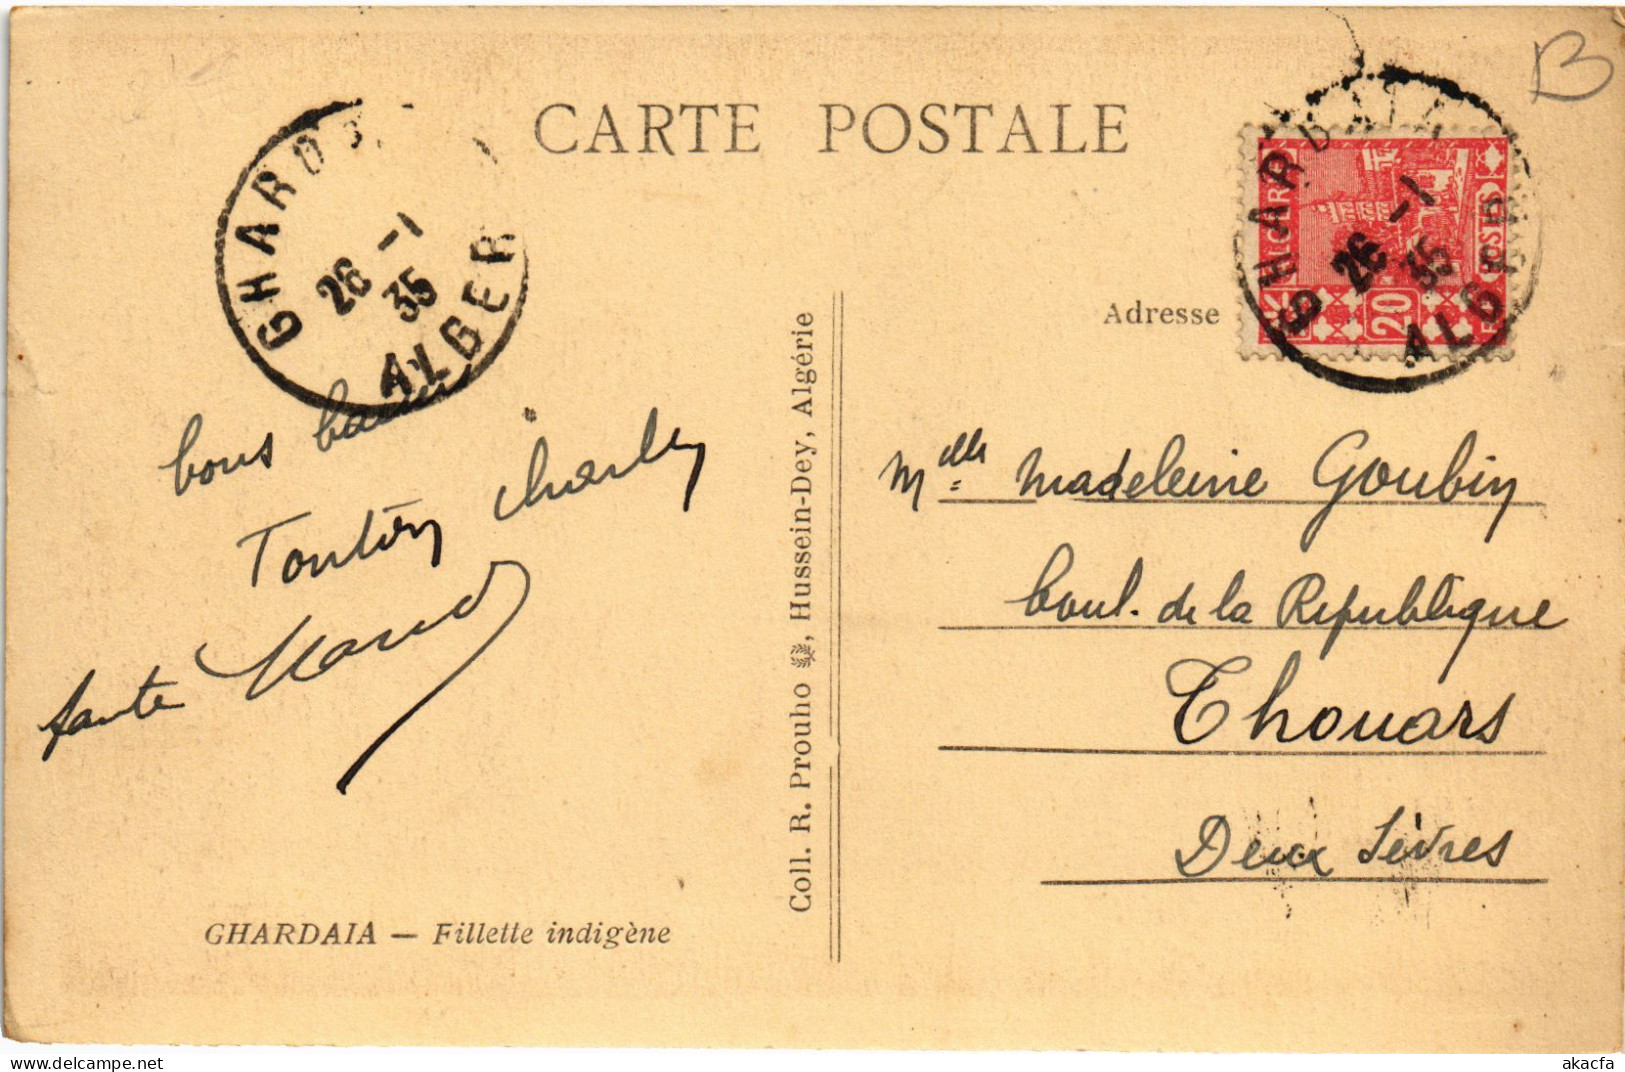 B
CARTE POSTALE
GHARDAIA
26 -1
35
ALGER
GHARDAIA
26 -1
35
ALGER
POSTES
20
Adresse
bons baisers
Tonton Charley
tante Maud
Melle Madeleine Goubin
boul. de la République
Thouars
Deux Sèvres
Coll. R. Prouho, Hussein-Dey, Algérie
GHARDAIA — Fillette indigène
akacfa